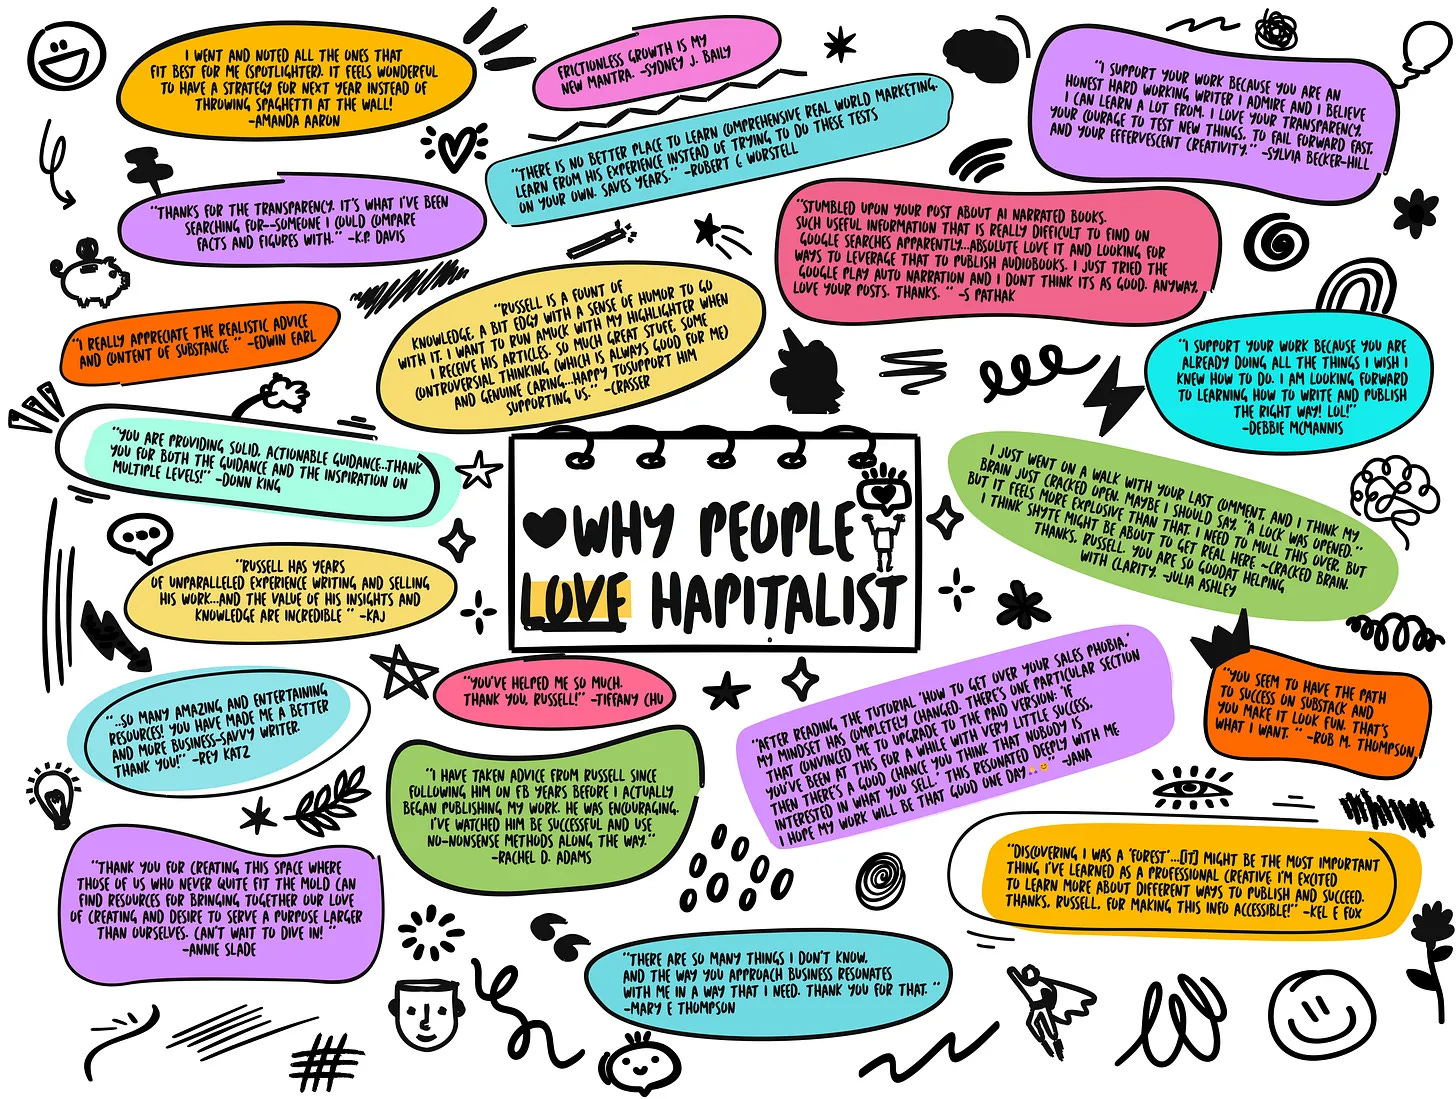 I WENT AND NOTED ALL THE ONES THAT
FIT BEST FOR ME (SPOTLIGHTER). IT FEELS WONDERFUL
TO HAVE A STRATEGY FOR NEXT YEAR INSTEAD OF
THROWING SPAGHETTI AT THE WALL!
-AMANDA AARON
FRICTIONLESS GROWTH IS MY
NEW MANTRA. -SYDNEY J. BAILY
"THERE IS NO BETTER PLACE TO LEARN COMPREHENSIVE REAL WORLD MARKETING.
LEARN FROM HIS EXPERIENCE INSTEAD OF TRYING TO DO THESE TESTS
ON YOUR OWN. SAVES YEARS." -ROBERT C WORSTELL
"I SUPPORT YOUR WORK BECAUSE YOU ARE AN
HONEST HARD WORKING WRITER I ADMIRE AND I BELIEVE
I CAN LEARN A LOT FROM. I LOVE YOUR TRANSPARENCY,
YOUR COURAGE TO TEST NEW THINGS, TO FAIL FORWARD FAST,
AND YOUR EFFERVESCENT CREATIVITY." -SYLVIA BECKER-HILL
"THANKS FOR THE TRANSPARENCY. IT'S WHAT I'VE BEEN
SEARCHING FOR--SOMEONE I COULD COMPARE
FACTS AND FIGURES WITH." -K.P. DAVIS
"STUMBLED UPON YOUR POST ABOUT AI NARRATED BOOKS.
SUCH USEFUL INFORMATION THAT IS REALLY DIFFICULT TO FIND ON
GOOGLE SEARCHES APPARENTLY...ABSOLUTE LOVE IT AND LOOKING FOR
WAYS TO LEVERAGE THAT TO PUBLISH AUDIOBOOKS. I JUST TRIED THE
GOOGLE PLAY AUTO NARRATION AND I DONT THINK ITS AS GOOD. ANYWAY,
LOVE YOUR POSTS. THANKS. " -S PATHAK
"RUSSELL IS A FOUNT OF
KNOWLEDGE, A BIT EDGY WITH A SENSE OF HUMOR TO GO
WITH IT. I WANT TO RUN AMUCK WITH MY HIGHLIGHTER WHEN
I RECEIVE HIS ARTICLES. SO MUCH GREAT STUFF, SOME
CONTROVERSIAL THINKING (WHICH IS ALWAYS GOOD FOR ME)
AND GENUINE CARING...HAPPY TOSUPPORT HIM
SUPPORTING US." -CRASSER
"I REALLY APPRECIATE THE REALISTIC ADVICE
AND CONTENT OF SUBSTANCE " -EDWIN EARL
"I SUPPORT YOUR WORK BECAUSE YOU ARE
ALREADY DOING ALL THE THINGS I WISH I
KNEW HOW TO DO. I AM LOOKING FORWARD
TO LEARNING HOW TO WRITE AND PUBLISH
THE RIGHT WAY! LOL!"
-DEBBIE MCMANNIS
"YOU ARE PROVIDING SOLID, ACTIONABLE GUIDANCE..THANK
YOU FOR BOTH THE GUIDANCE AND THE INSPIRATION ON
MULTIPLE LEVELS!" -DONN KING
WHY PEOPLE
LOVE HAPITALIST
I JUST WENT ON A WALK WITH YOUR LAST COMMENT, AND I THINK MY
BRAIN JUST CRACKED OPEN. MAYBE I SHOULD SAY, "A LOCK WAS OPENED."
BUT IT FEELS MORE EXPLOSIVE THAN THAT. I NEED TO MULL THIS OVER, BUT
I THINK SHYTE MIGHT BE ABOUT TO GET REAL HERE ~CRACKED BRAIN.
THANKS, RUSSELL. YOU ARE SO GOODAT HELPING
WITH CLARITY. -JULIA ASHLEY
"RUSSELL HAS YEARS
OF UNPARALLELED EXPERIENCE WRITING AND SELLING
HIS WORK...AND THE VALUE OF HIS INSIGHTS AND
KNOWLEDGE ARE INCREDIBLE " -KAJ
"..SO MANY AMAZING AND ENTERTAINING
RESOURCES! YOU HAVE MADE ME A BETTER
AND MORE BUSINESS-SAVVY WRITER.
THANK YOU!" -REY KATZ
"YOU'VE HELPED ME SO MUCH.
THANK YOU, RUSSELL!" -TIFFANY CHU
"AFTER READING THE TUTORIAL 'HOW TO GET OVER YOUR SALES PHOBIA,'
MY MINDSET HAS COMPLETELY CHANGED. THERE'S ONE PARTICULAR SECTION
THAT CONVINCED ME TO UPGRADE TO THE PAID VERSION: 'IF
YOU'VE BEEN AT THIS FOR A WHILE WITH VERY LITTLE SUCCESS,
THEN THERE'S A GOOD CHANCE YOU THINK THAT NOBODY IS
INTERESTED IN WHAT YOU SELL.' THIS RESONATED DEEPLY WITH ME
I HOPE MY WORK WILL BE THAT GOOD ONE DAY🙏😊" -JANA
"YOU SEEM TO HAVE THE PATH
TO SUCCESS ON SUBSTACK AND
YOU MAKE IT LOOK FUN. THAT'S
WHAT I WANT. " -ROB M. THOMPSON
"I HAVE TAKEN ADVICE FROM RUSSELL SINCE
FOLLOWING HIM ON FB YEARS BEFORE I ACTUALLY
BEGAN PUBLISHING MY WORK. HE WAS ENCOURAGING.
I'VE WATCHED HIM BE SUCCESSFUL AND USE
NO-NONSENSE METHODS ALONG THE WAY."
-RACHEL D. ADAMS
"DISCOVERING I WAS A 'FOREST'...[IT] MIGHT BE THE MOST IMPORTANT
THING I'VE LEARNED AS A PROFESSIONAL CREATIVE I'M EXCITED
TO LEARN MORE ABOUT DIFFERENT WAYS TO PUBLISH AND SUCCEED.
THANKS, RUSSELL, FOR MAKING THIS INFO ACCESSIBLE!" -KEL E FOX
"THANK YOU FOR CREATING THIS SPACE WHERE
THOSE OF US WHO NEVER QUITE FIT THE MOLD CAN
FIND RESOURCES FOR BRINGING TOGETHER OUR LOVE
OF CREATING AND DESIRE TO SERVE A PURPOSE LARGER
THAN OURSELVES. CAN'T WAIT TO DIVE IN! "
-ANNIE SLADE
"THERE ARE SO MANY THINGS I DON'T KNOW,
AND THE WAY YOU APPROACH BUSINESS RESONATES
WITH ME IN A WAY THAT I NEED. THANK YOU FOR THAT. "
-MARY E THOMPSON